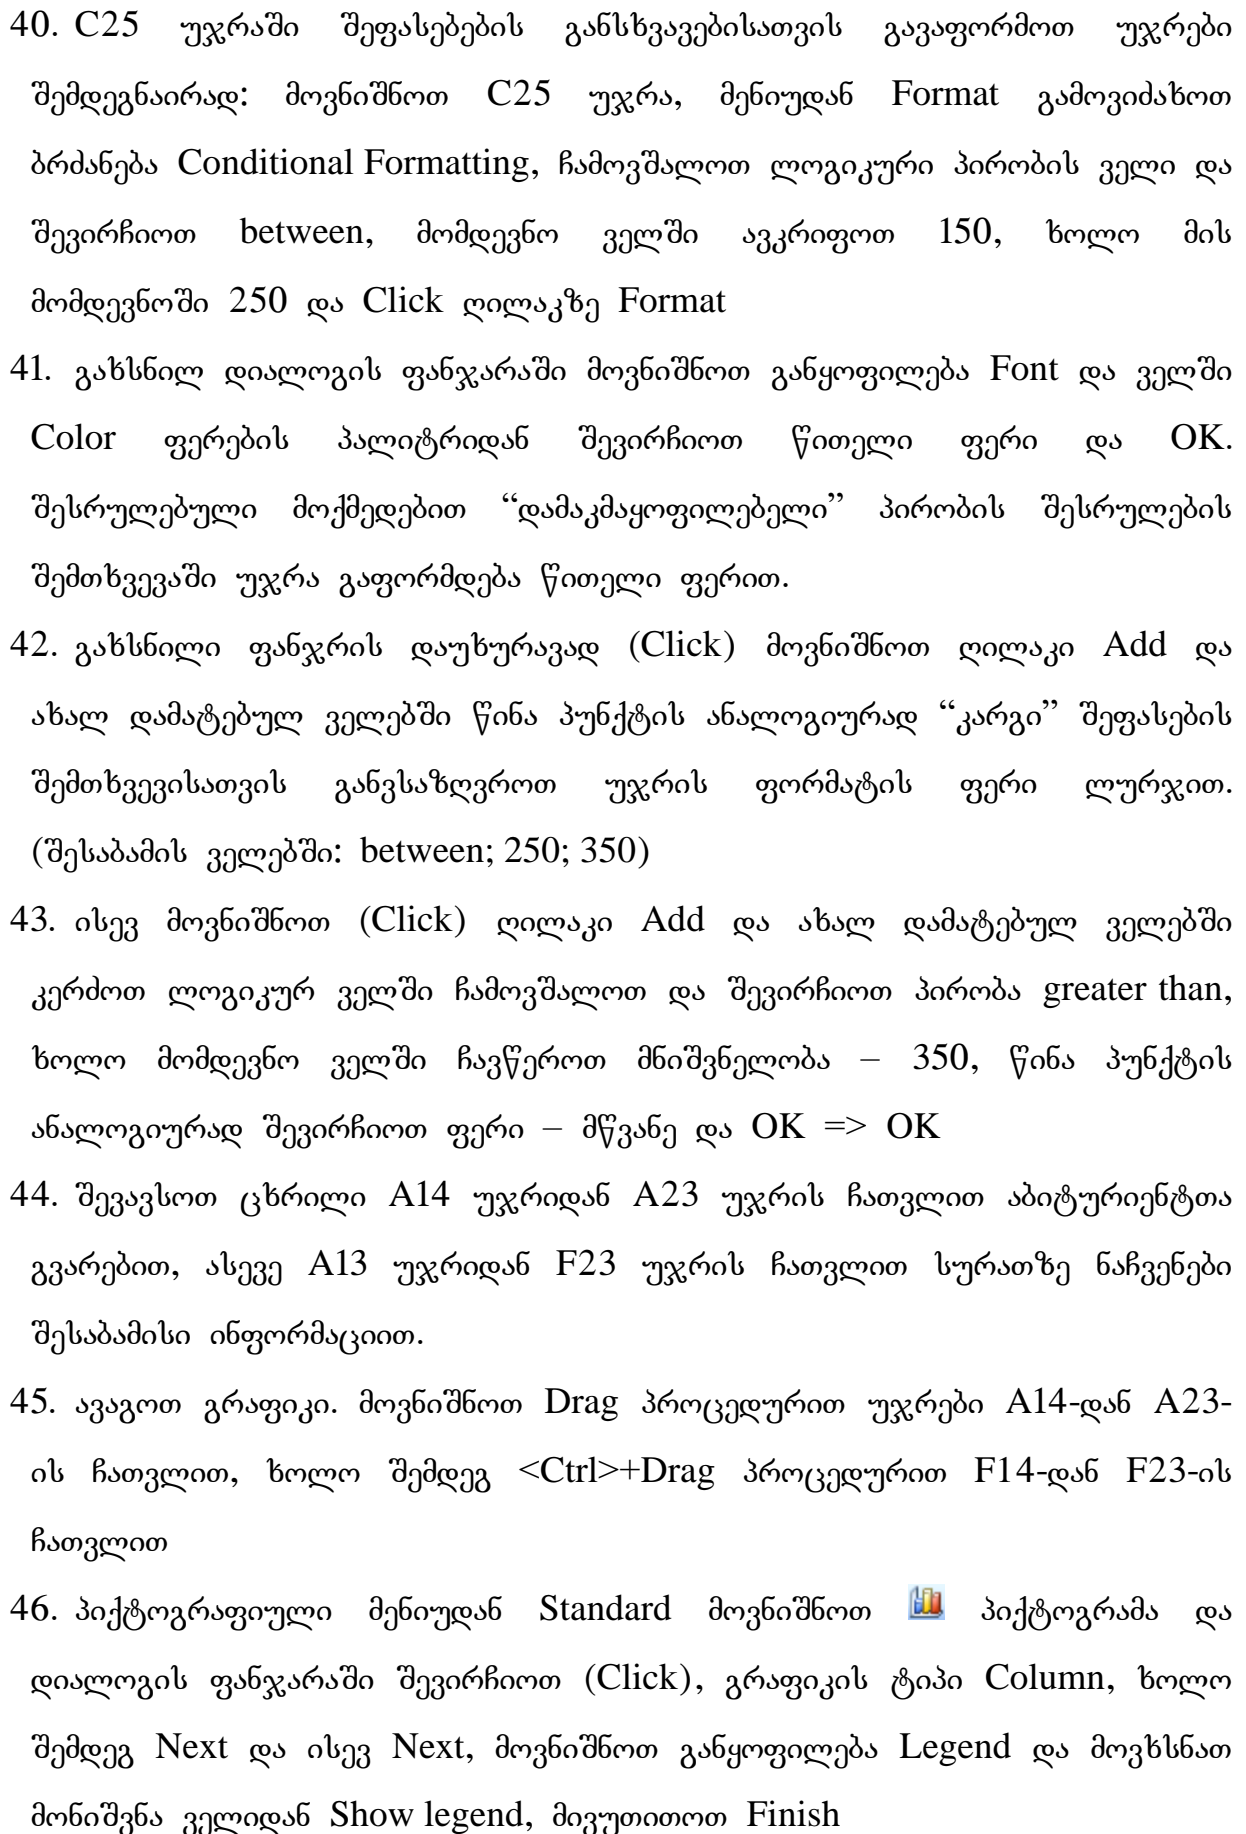 40. C25 უჯრაში შეფასებების განსხვავებისათვის გავაფორმოთ უჯრები
შემდეგნაირად: მოვნიშნოთ C25 უჯრა, მენიუდან Format გამოვიძახოთ
ბრძანება Conditional Formatting, ჩამოვშალოთ ლოგიკური პირობის ველი და
შევირჩიოთ between, მომდევნო ველში ავკრიფოთ 150, ხოლო მის
მომდევნოში 250 და Click ღილაკზე Format
41. გახსნილ დიალოგის ფანჯარაში მოვნიშნოთ განყოფილება Font და ველში
Color ფერების პალიტრიდან შევირჩიოთ წითელი ფერი და OK.
შესრულებული მოქმედებით “დამაკმაყოფილებელი” პირობის შესრულების
შემთხვევაში უჯრა გაფორმდება წითელი ფერით.
42. გახსნილი ფანჯრის დაუხურავად (Click) მოვნიშნოთ ღილაკი Add და
ახალ დამატებულ ველებში წინა პუნქტის ანალოგიურად “კარგი” შეფასების
შემთხვევისათვის განვსაზღვროთ უჯრის ფორმატის ფერი ლურჯით.
(შესაბამის ველებში: between; 250; 350)
43. ისევ მოვნიშნოთ (Click) ღილაკი Add და ახალ დამატებულ ველებში
კერძოთ ლოგიკურ ველში ჩამოვშალოთ და შევირჩიოთ პირობა greater than,
ხოლო მომდევნო ველში ჩავწეროთ მნიშვნელობა – 350, წინა პუნქტის
ანალოგიურად შევირჩიოთ ფერი – მწვანე და OK => OK
44. შევავსოთ ცხრილი A14 უჯრიდან A23 უჯრის ჩათვლით აბიტურიენტთა
გვარებით, ასევე A13 უჯრიდან F23 უჯრის ჩათვლით სურათზე ნაჩვენები
შესაბამისი ინფორმაციით.
45. ავაგოთ გრაფიკი. მოვნიშნოთ Drag პროცედურით უჯრები A14-დან A23-
ის ჩათვლით, ხოლო შემდეგ <Ctrl>+Drag პროცედურით F14-დან F23-ის
ჩათვლით
46. პიქტოგრაფიული მენიუდან Standard მოვნიშნოთ პიქტოგრამა და
დიალოგის ფანჯარაში შევირჩიოთ (Click), გრაფიკის ტიპი Column, ხოლო
შემდეგ Next და ისევ Next, მოვნიშნოთ განყოფილება Legend და მოვხსნათ
მონიშვნა ველიდან Show legend, მივუთითოთ Finish